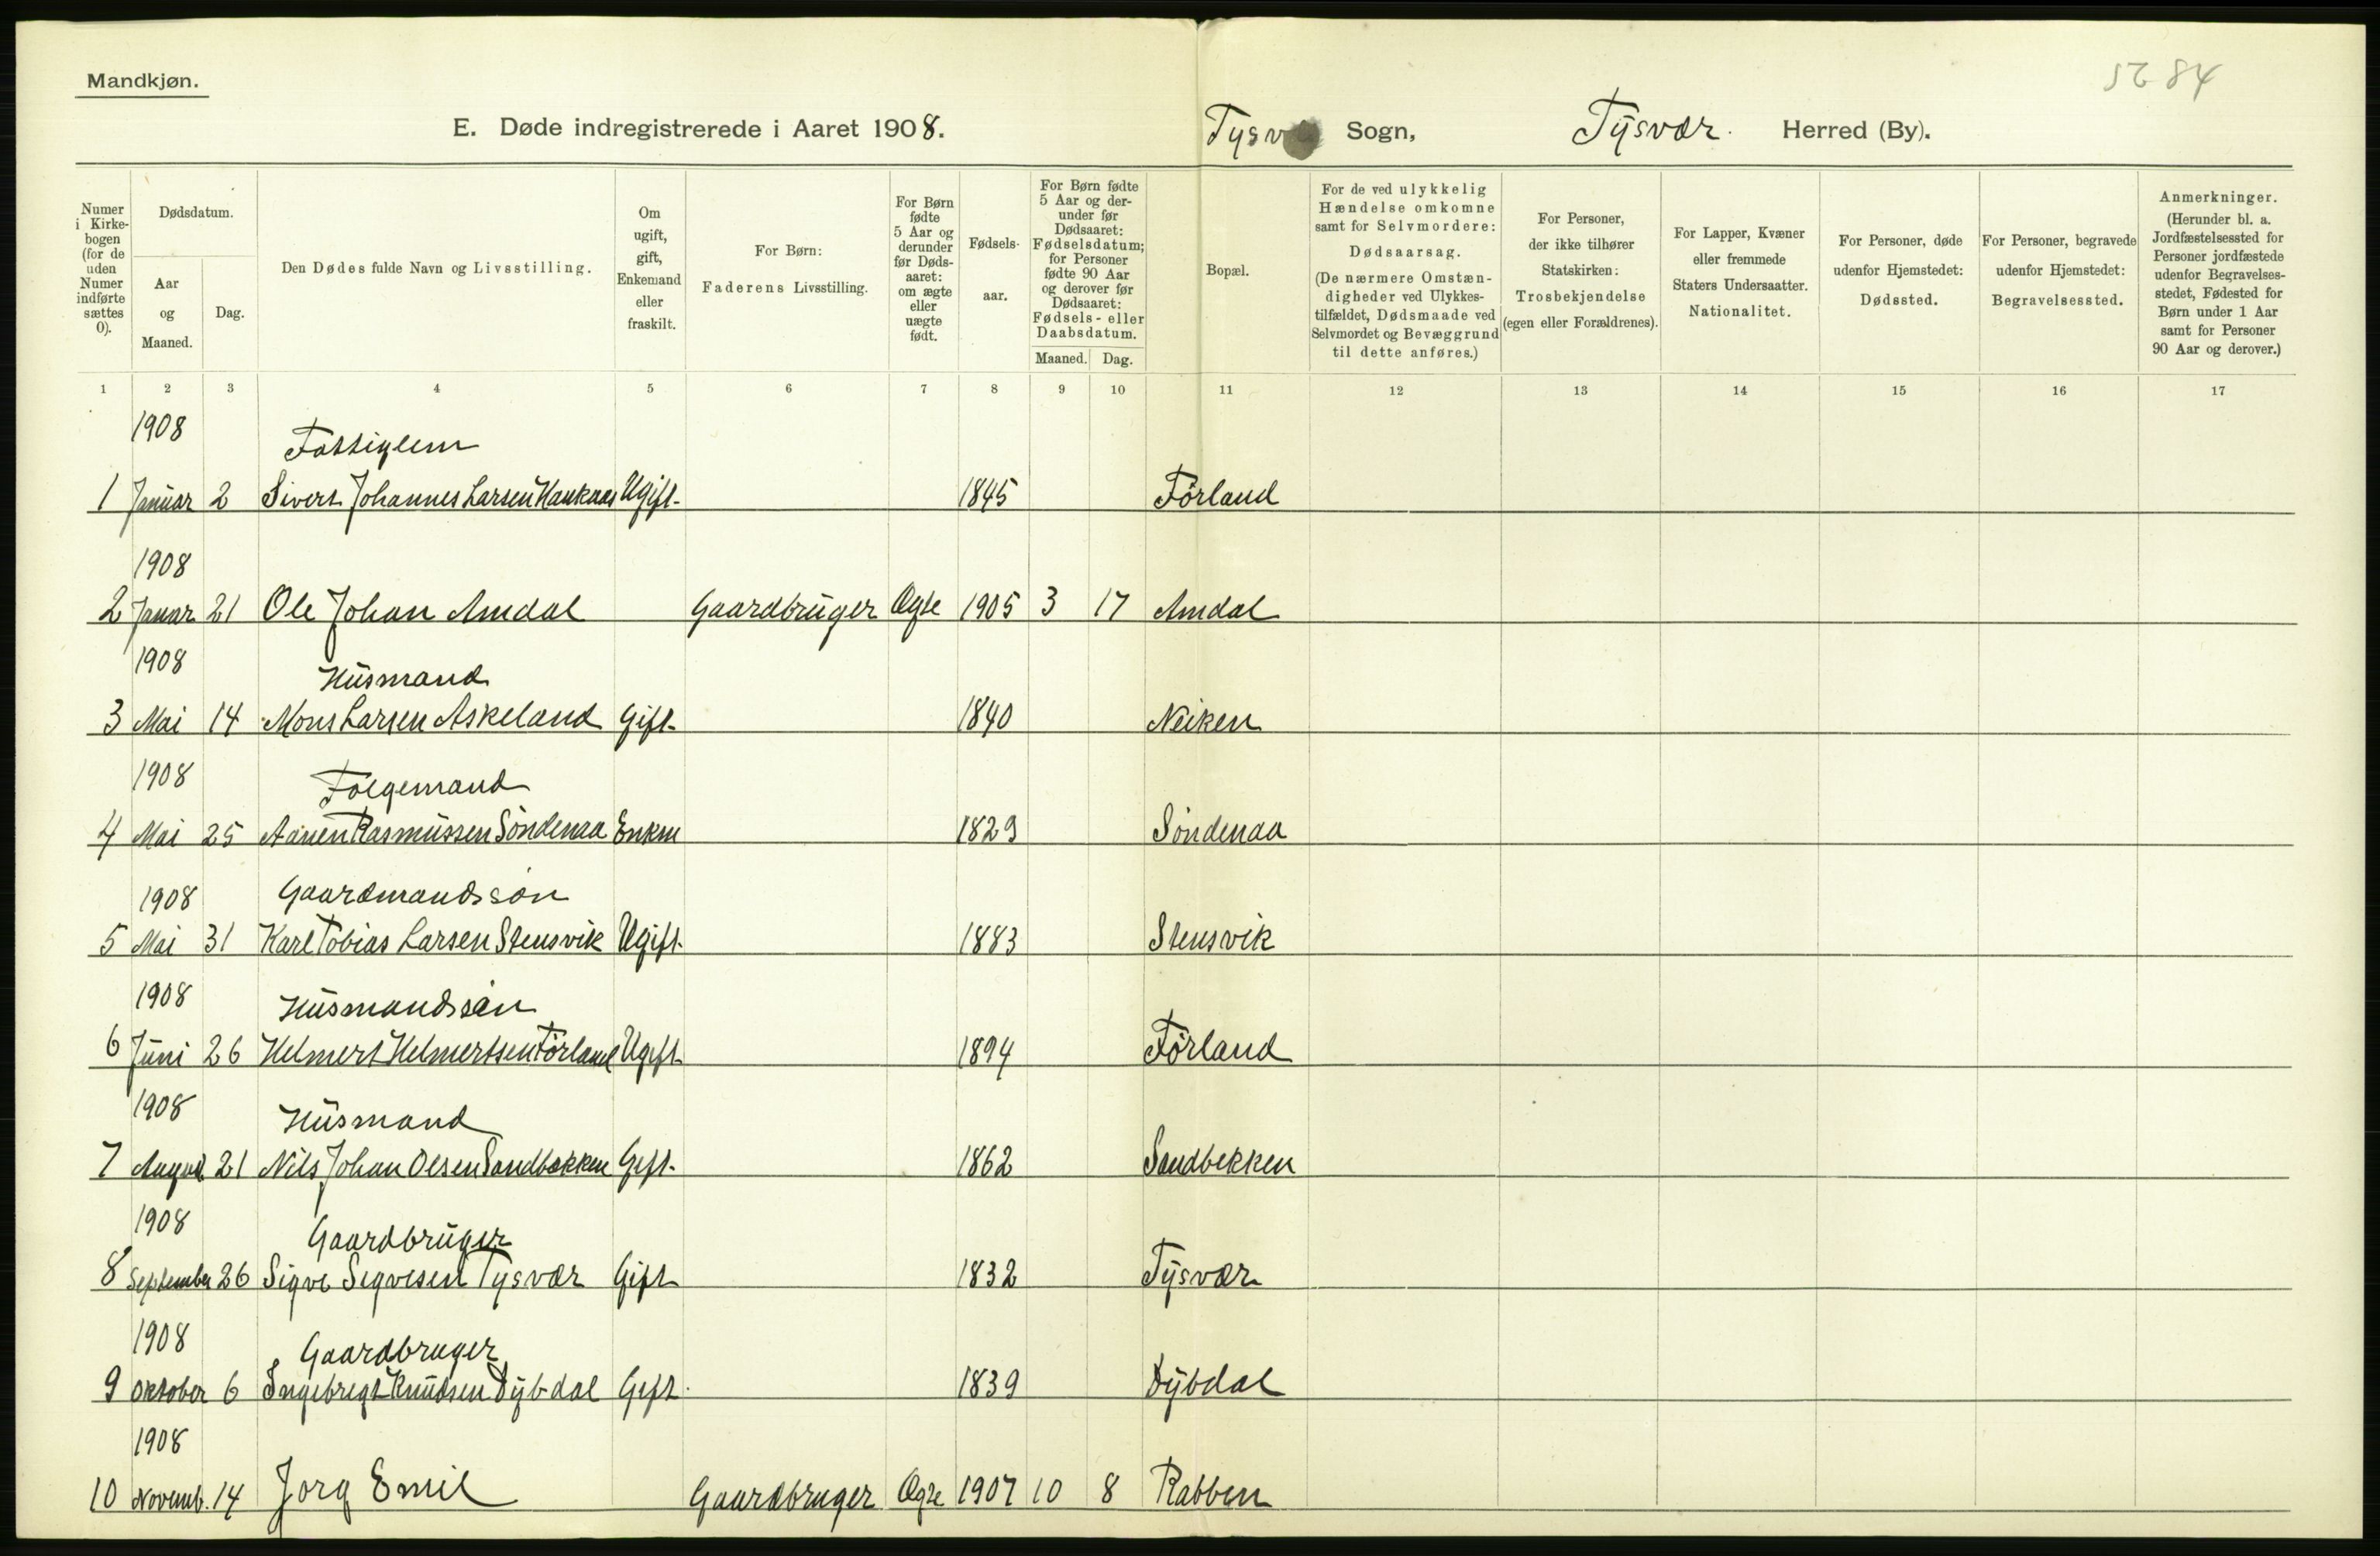 Mandkjøn.
5284
E. Døde indregistrerede i Aaret 1908. Sogn, Tysvær. Herred (By).
Numer i Kirke-bogen (for de uden Numer indførte sættes 0).
Dødsdatum.
Aar og Maaned.
Dag.
Den Dødes fulde Navn og Livsstilling.
Om ugift, gift, Enkemand eller fraskilt.
For Børn: Faderens Livsstilling.
For Børn fødte 5 Aar og derunder før Døds-aaret: om ægte eller uægte født.
Fødsels-aar.
For Børn fødte 5 Aar og der-under før Dødsaaret: Fødselsdatum; for Personer fødte 90 Aar og derover før Dødsaaret: Fødsels- eller Daabsdatum.
Maaned. Dag.
Bopæl.
For de ved ulykkelig Hændelse omkomne samt for Selvmordere: Dødsaarsag. (De nærmere Omstæn-digheder ved Ulykkes-tilfældet, Dødsmaade ved Selvmordet og Bevæggrund til dette anføres.)
For Personer, der ikke tilhører Statskirken: Trosbekjendelse (egen eller Forældrenes).
For Lapper, Kvæner eller fremmede Staters Undersaatter. Nationalitet.
For Personer, døde udenfor Hjemstedet: Dødssted.
For Personer, begravede udenfor Hjemstedet: Begravelsessted.
Anmerkninger. (Herunder bl. a. Jordfæstelsessted for Personer jordfæstede udenfor Begravelses-stedet, Fødested for Børn under 1 Aar samt for Personer 90 Aar og derover.)
1 2 3 4 5 6 7 8 9 10 11 12 13 14 15 16 17
1908 Fattiglem
1 Januar 2 Sivert Johannes Larsen Haukaas Ugift 1845 Førland
1908
2 Januar 21 Ole Johan Amdal Gaardbruger Ægte 1905 3 17 Amdal
1908 Husmand
3 Mai 14 Mons Larsen Askeland Gift 1840 Neiken
1908 Følgemand
4 Mai 25 Aanen Rasmussen Søndenaa Enkm 1829 Søndenaa
1908 Gaardmandssøn
5 Mai 31 Karl Tobias Larsen Stensvik Ugift 1883 Stensvik
1908 Husmandssøn
6 Juni 26 Helmert Helmertsen Førland Ugift 1894 Førland
1908 Husmand
7 August 21 Nils Johan Olsen Sandbekken Gift 1862 Sandbekken
1908 Gaardbruger
8 September 26 Sigve Segvesen Tysvær Gift 1832 Tysvær
1908 Gaardbruger
9 Oktober 6 Ingebregt Knudsen Dybdal Gift 1839 Dybdal
1908
10 Novemb. 14 Jorg Emil Gaardbruger Ægte 1907 10 8 Rabben